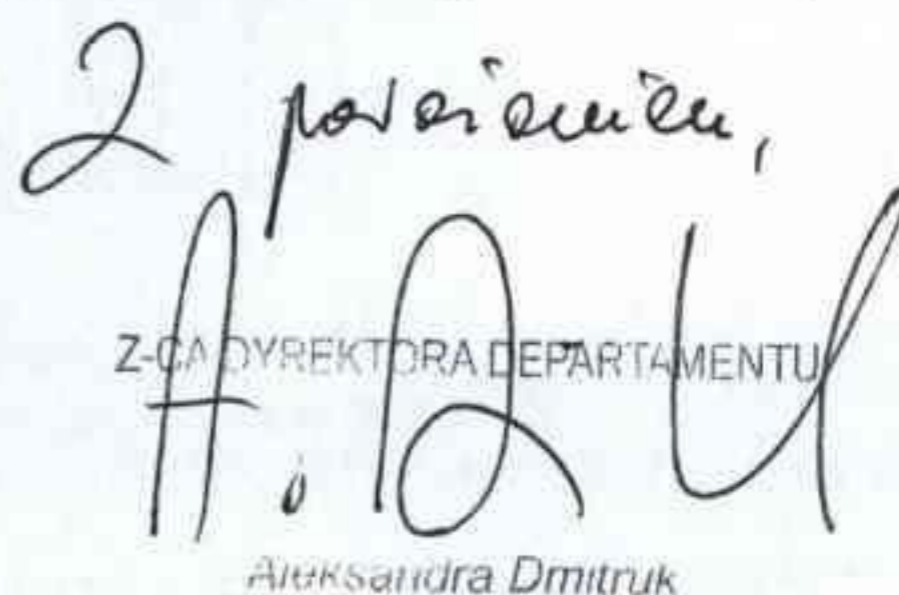 Z poważaniem,
Z-CA DYREKTORA DEPARTAMENTU
Aleksandra Dmitruk